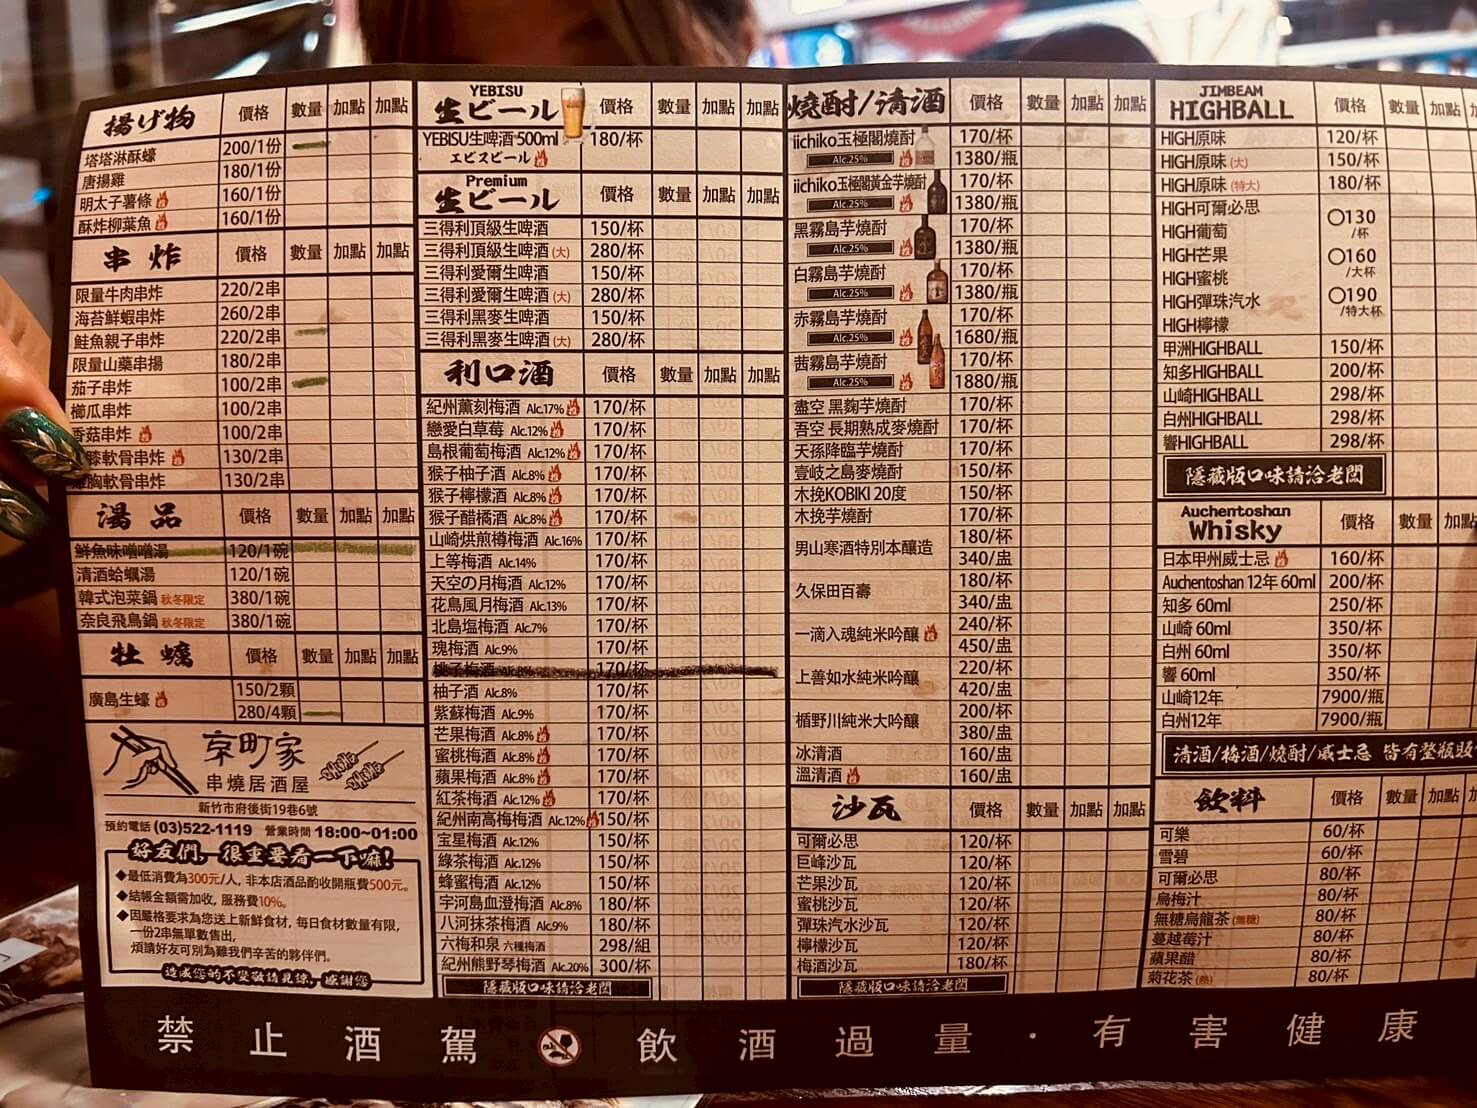 揚げ物 價格 數量 加點 加點
塔塔淋酥蠔 200/1份
唐揚雞 180/1份
明太子薯條 160/1份
酥炸柳葉魚 160/1份
串炸 價格 數量 加點 加點
限量牛肉串炸 220/2串
海苔鮮蝦串炸 260/2串
鮭魚親子串炸 220/2串
限量山藥串揚 180/2串
茄子串炸 100/2串
櫛瓜串炸 100/2串
香菇串炸 100/2串
膝軟骨串炸 130/2串
雞胸軟骨串炸 130/2串
湯品 價格 數量 加點 加點
鮮魚味噌噌湯 120/1碗
清酒蛤蠣湯 120/1碗
韓式泡菜鍋 秋冬限定 380/1碗
奈良飛鳥鍋 秋冬限定 380/1碗
牡蠣 價格 數量 加點 加點
廣島生蠔 150/2顆
280/4顆
京町家
串燒居酒屋
新竹市府後街19巷6號
預約電話 (03)522-1119 營業時間 18:00~01:00
好友們,很重要看一下嘛!
◆最低消費為300元/人, 非本店酒品酌收開瓶費500元。
◆結帳金額需加收, 服務費10%。
◆因嚴格要求為您送上新鮮食材, 每日食材數量有限,
一份2串無單數售出,
煩請好友可別為難我們辛苦的夥伴們。
造成您的不變敬請見諒,感謝您
YEBISU
生ビール 價格 數量 加點 加點
YEBISU生啤酒 500ml 180/杯
エビスビール
Premium
生ビール 價格 數量 加點 加點
三得利頂級生啤酒 150/杯
三得利頂級生啤酒 (大) 280/杯
三得利愛爾生啤酒 150/杯
三得利愛爾生啤酒 (大) 280/杯
三得利黑麥生啤酒 150/杯
三得利黑麥生啤酒 (大) 280/杯
利口酒 價格 數量 加點 加點
紀州薰刻梅酒 Alc.17% 170/杯
戀愛白草莓 Alc.12% 170/杯
島根葡萄梅酒 Alc.12% 170/杯
猴子柚子酒 Alc.8% 170/杯
猴子檸檬酒 Alc.8% 170/杯
猴子醋橘酒 Alc.8% 170/杯
山崎烘煎樽梅酒 Alc.16% 170/杯
上等梅酒 Alc.14% 170/杯
天空の月梅酒 Alc.12% 170/杯
花鳥風月梅酒 Alc.13% 170/杯
北島塩梅酒 Alc.7% 170/杯
瑰梅酒 Alc.9% 170/杯
桃子梅酒 Alc.8% 170/杯
柚子酒 Alc.8% 170/杯
紫蘇梅酒 Alc.9% 170/杯
芒果梅酒 Alc.8% 170/杯
蜜桃梅酒 Alc.8% 170/杯
蘋果梅酒 Alc.8% 170/杯
紅茶梅酒 Alc.12% 170/杯
紀州南高梅梅酒 Alc.12% 150/杯
宝星梅酒 Alc.12% 150/杯
綠茶梅酒 Alc.12% 150/杯
蜂蜜梅酒 Alc.12% 150/杯
宇河島血澄梅酒 Alc.8% 180/杯
八河抹茶梅酒 Alc.9% 180/杯
六梅和泉 六種梅酒 298/組
紀州熊野琴梅酒 Alc.20% 300/杯
隱藏版口味請洽老闆
燒酎/清酒 價格 數量 加點 加點
iichiko玉極閣燒酎 170/杯
Alc.25% 1380/瓶
iichiko玉極閣黃金芋燒酎 170/杯
Alc.25% 1380/瓶
黑霧島芋燒酎 170/杯
Alc.25% 1380/瓶
白霧島芋燒酎 170/杯
Alc.25% 1380/瓶
赤霧島芋燒酎 170/杯
Alc.25% 1680/瓶
茜霧島芋燒酎 170/杯
Alc.25% 1880/瓶
盡空 黑麴芋燒酎 170/杯
吾空 長期熟成麥燒酎 170/杯
天孫降臨芋燒酎 170/杯
壹岐之島麥燒酎 150/杯
木挽KOBIKI 20度 150/杯
木挽芋燒酎 170/杯
男山寒酒特別本釀造 180/杯
340/盅
久保田百壽 180/杯
340/盅
一滴入魂純米吟釀 240/杯
450/盅
上善如水純米吟釀 220/杯
420/盅
楯野川純米大吟釀 200/杯
380/盅
冰清酒 160/盅
溫清酒 160/盅
沙瓦 價格 數量 加點 加點
可爾必思 120/杯
巨峰沙瓦 120/杯
芒果沙瓦 120/杯
蜜桃沙瓦 120/杯
彈珠汽水沙瓦 120/杯
檸檬沙瓦 120/杯
梅酒沙瓦 180/杯
隱藏版口味請洽老闆
JIMBEAM
HIGHBALL 價格 數量 加點
HIGH原味 120/杯
HIGH原味 (大) 150/杯
HIGH原味 (特大) 180/杯
HIGH可爾必思
HIGH葡萄
HIGH芒果
HIGH蜜桃
HIGH彈珠汽水
HIGH檸檬
〇130/杯
〇160/大杯
〇190/特大杯
甲洲HIGHBALL 150/杯
知多HIGHBALL 200/杯
山崎HIGHBALL 298/杯
白州HIGHBALL 298/杯
響HIGHBALL 298/杯
隱藏版口味請洽老闆
Auchentoshan
Whisky 價格 數量 加點
日本甲州威士忌 160/杯
Auchentoshan 12年 60ml 200/杯
知多 60ml 250/杯
山崎 60ml 350/杯
白州 60ml 350/杯
響 60ml 350/杯
山崎12年 7900/瓶
白州12年 7900/瓶
清酒/梅酒/燒酎/威士忌 皆有整瓶販
飲料 價格 數量 加點
可樂 60/杯
雪碧 60/杯
可爾必思 80/杯
烏梅汁 80/杯
無糖烏龍茶 (無糖) 80/杯
蔓越莓汁 80/杯
蘋果醋 80/杯
菊花茶 (熱) 80/杯
禁止酒駕 飲酒過量・有害健康